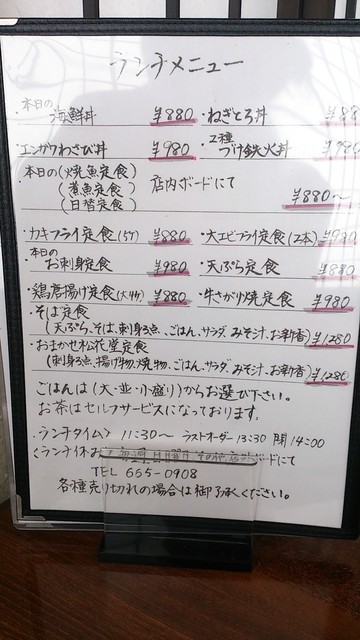 ランチメニュー
・本日の海鮮丼 ¥880 ・ねぎとろ丼 ¥88
・エンガワわさび丼 ¥980 ・2種づけ鉄火丼 ¥780
本日の(焼魚定食) 店内ボードにて
(煮魚定食)
(日替定食) ¥880〜
・カキフライ定食(5ケ) ¥880 ・大エビフライ定食(2本)
本日の
・お刺身定食 ¥980 ・天ぷら定食 ¥880
・鶏唐揚げ定食 ¥880 ・牛さがり焼定食 ¥980
・そば定食
(天ぷら、そば、刺身3点、ごはん、サラダ、みそ汁、お新香) ¥1280
・おまかせ松花堂定食
(刺身3点、揚げ物、焼物、ごはん、サラダ、みそ汁、お新香) ¥1280
ごはんは(大・並・小盛り)からお選び下さい。
お茶はセルフサービスになっております。
ランチタイム〉 11:30〜 ラストオーダー13:30 閉14:00
〈ランチ休み 毎週日曜日 その他店内ボードにて
TEL 665-0908
各種売り切れの場合は御了承ください。